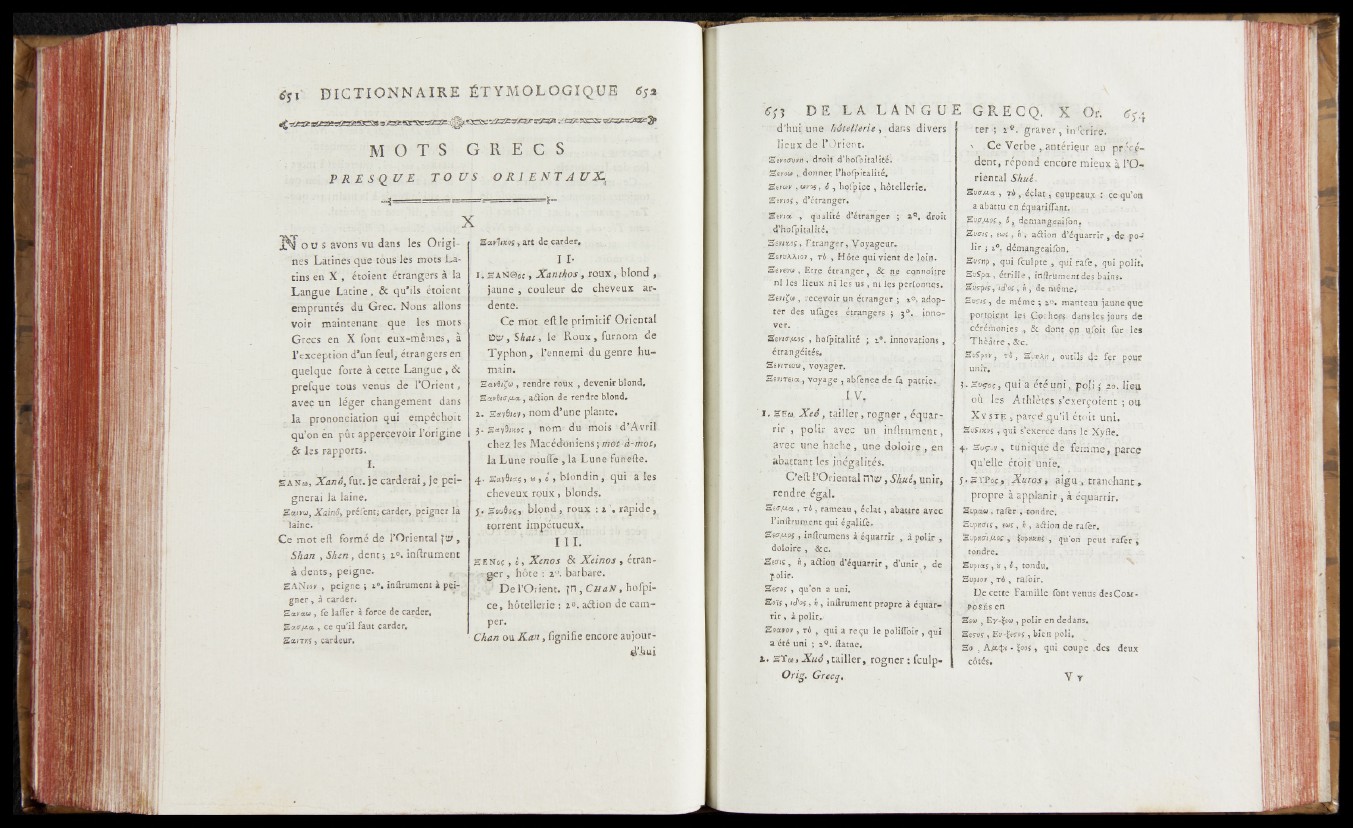 651 DICTIONNAIRE ÉTYMOLOGIQUE 652
MOTS GRECS
PRESQUE TOUS ORIENTAUX,
X
Nous avons vu dans les Origi-
nes Latines que tous les mots La-
tins en X, étoient étrangers à la
Langue Latine, & qu'ils étoient
empruntés du Grec. Nous allons
voir maintenant que les mots
Grecs en X sont eux-mêmes, à
l'exception d'un seul, étrangers en
quelque sorte à cette Langue, &
presque tous venus de l'Orient,
avec un léger changement dans
la prononciation qui empêchoit
qu'on en pût appercevoir l'origine
& les rapports.
I.
ΞΑΝω, Xanô, fut. je carderai, je pei-
gnerai la laine.
Ξαινω, Xainô, présent; carder, peigner la
laine.
Ce mot est formé de l'Oriental שן,
Shan, Shen, dent; 2°. instrument
à dents, peigne.
ΞΑΝιον, peigne; 2°. instrument à pei-
gner, à carder.
Ξαναω, se lasser à force de carder.
Ξασμα, ce qu'il faut carder.
Ξαντης, cardeur.
Ξαντικος, art de carder.
II.
1. ΞΑΝΘος, Xanthos, roux, blond,
jaune, couleur de cheveux ar-
dente.
Ce mot est le primitif Oriental
שט, Shat, le Roux, surnom de
Typhon, l'ennemi du genre hu-
main.
Ξανθιζω, rendre roux, devenir blond.
Ξανθισμα, action de rendre blond.
2. Ξανθιον, nom d'une plante.
3. Ξανθικος, nom du mois d'Avril
chez les Macédoniens; mot-à-mot,
la Lune rousse, la Lune funeste.
4. Ξανθιας, ου, ὁ, blondin, qui a les
cheveux roux, blonds.
5. Ξουθος, blond, roux : 2°. rapide,
torrent impétueux.
III.
ΞΕΝος, ὁ, Xenos & Xeinos, étran-
ger, hôte : 2°. barbare.
De l'Orient. חן, CHAN, hospi-
ce, hôtellerie : 2°. action de cam-
per.
Chan ou Kan, signifie encore aujour-
d'hui
653 DE LA LANGUE GRECQ. X Or. 654
d'hui une hôtellerie, dans divers
lieux de l'Orient.
Ξενοσυνη, droit d'hospitalité.
Ξενοω, donner l'hospitalité.
Ξενων, ωνος, ὁ, hospice, hôtellerie.
Ξενιος, d'étranger.
Ξενια, qualité d'étranger; 2°. droit
d'hospitalité.
Ξενικος, Etranger, Voyageur.
Ξενυλλιον, τό, Hôte qui vient de loin.
Ξενεου, Etre étranger, & ne connoître
ni les lieux ni les us, ni les personnes.
Ξενιζω, recevoir un étranger; 2°. adop-
ter des usages étrangers; 3°. inno-
ver.
Ξενισμος, hospitalité; 2°. innovations,
étrangéités.
Ξενιτευω, voyager.
Ξενιτεια, voyage, absence de sa patrie.
IV.
1. ΞΕω, Xeô, tailler, rogner, équar-
rir, polir avec un instrument,
avec une hache, une doloire, en
abattant les inégalités.
C'est l'Oriental שוה, Shué, unir,
rendre égal.
Ξεσμα, τό, rameau, éclat, abattre avec
l'instrument qui égalise.
Ξεσμος, instrumens à équarrir, à polir,
doloire, &c.
Ξεσις, ἡ, action d'équarrir, d'unir, de
polir.
Ξεσος, qu'on a uni.
Ξοις, ιδος, ἡ, instrument propre à équar-
rir, à polir.
Ξοανον, τό, qui a reçu le polissoir, qui
a été uni; 2°. statue.
2. ΞΥω, Xuô, tailler, rogner : sculp-
Orig. Grecq.
ter; 2°. graver, inscrire.
Ce Verbe, antérieur au précé-
dent, répond encore mieux à l'O-
riental Shué.
Ξυσμα, τό, éclat, coupeaux : ce qu'on
a abattu en équarissant.
Ξυσμος, ὁ, demangeaison.
Ξυσις, εως, ἡ, action d'équarrir, de po-
lir; 2°. démangeaison.
Ξυσηρ, qui sculpte, qui rase, qui polit.
Ξυσρα, étrille, instrument des bains.
Ξυσρις, ιδος, ἡ, de même.
Ξυσις, de même; 2°. manteau jaune que
portoient les Cochers dans les jours de
cérémonies, & dont on usoit sur les
Théâtre, &c.
Ξυσρον, τό, Ξυηλη, outils de fer pour
unir.
3. Ξυσος, qui a été uni, poli; 2o. lieu
où les Athlètes s'exerçoient; ou
XYSTE, parce qu'il étoit uni.
Ξυσικος, qui s'exerce dans le Xyste.
4. Ξυσις, tunique de femme, parce
qu'elle étoit unie.
5. ΞΥΡος, Xuros, aigu, tranchant,
propre à applanir, à équarrir.
Ξυραω, raser, tondre.
Ξυρησις, εως, ἡ, action de raser.
Ξυρησιμος, ξυρηκης, qu'on peut raser,
tondre.
Ξυριας, ου, ὁ, tondu.
Ξυριον, τό, rasoir.
De cette Famille sont venus des COM-
POSÉS en
Ξεω, Εν-ξεω, polir en dedans.
Ξεσος, Ευ-ξεσος, bien poli.
Ξο, Αμφι-ξους, qui coupe des deux
côtés.
V v